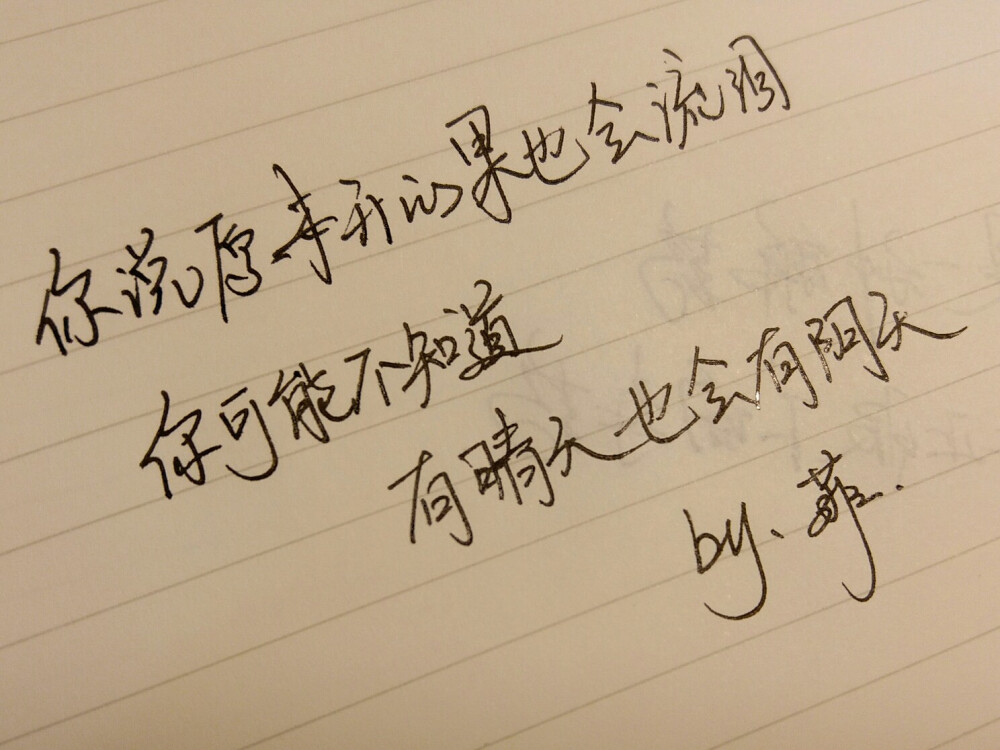 你说原来开心果也会流泪
你可能不知道
有晴天也会有阴天
by、菲.